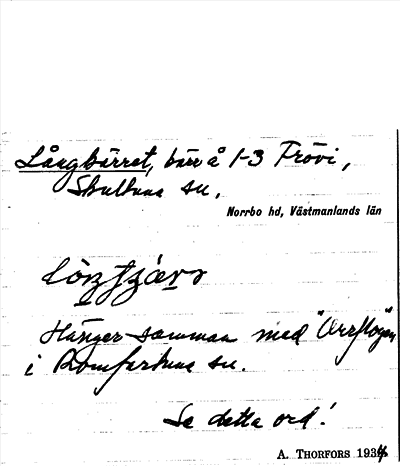 Långkärret, kärr å 1-3 Frövi,
Skultuna sn.
Norrbo hd, Västmanlands län
Hänger samman med "Orrflogen"
i Romfartuna sn.
Se detta ord!
A. THORFORS 1934